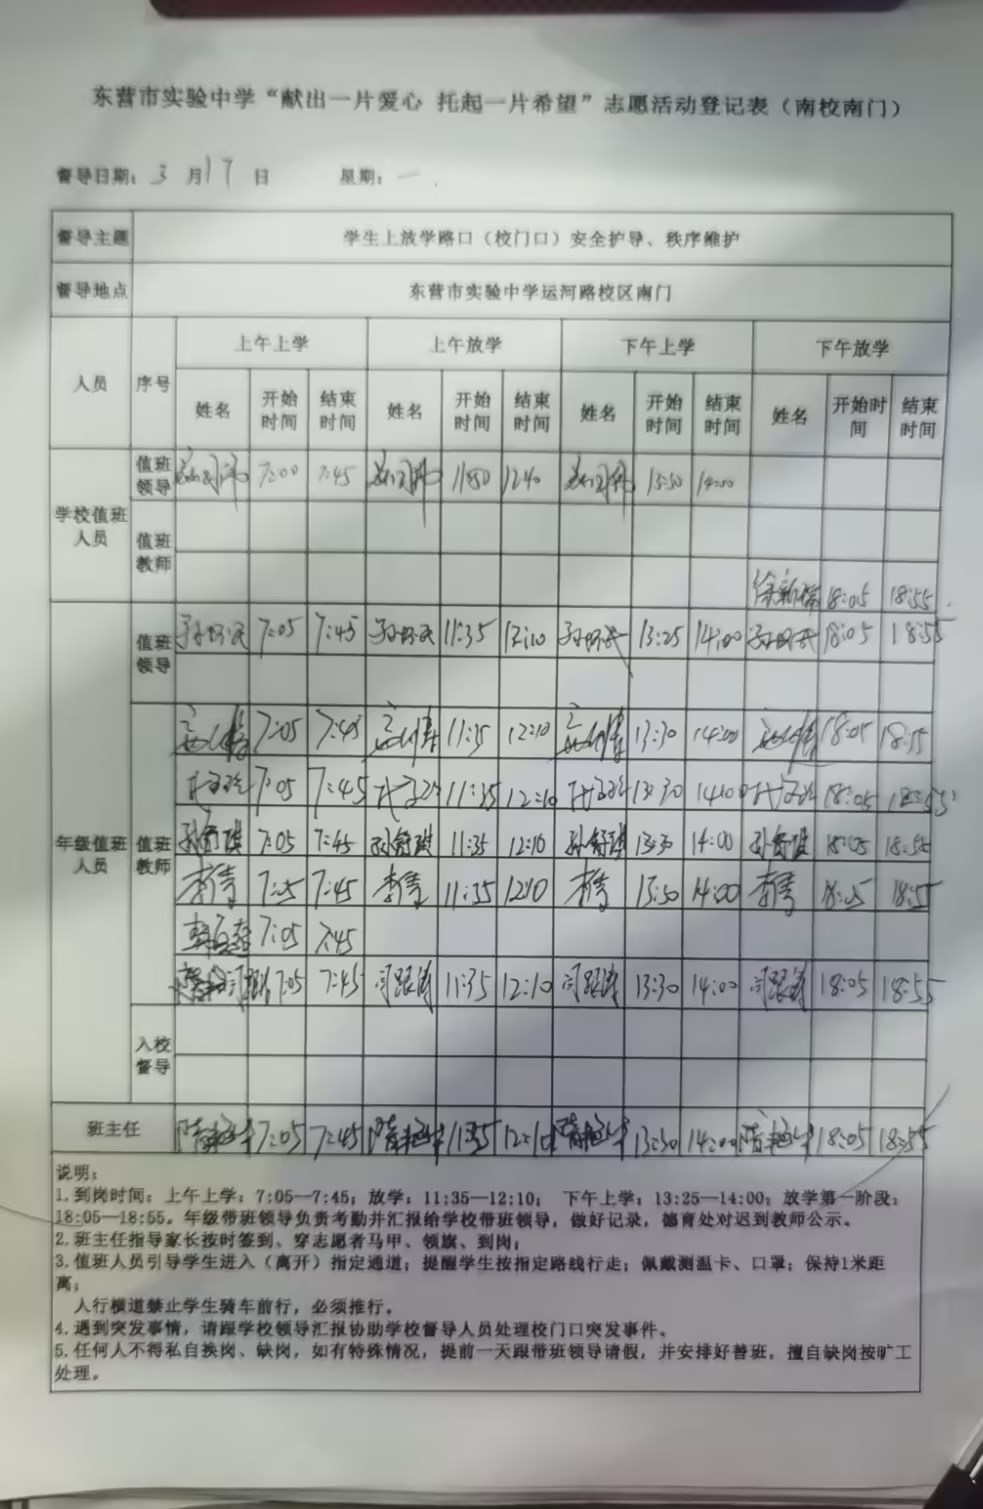 东营市实验中学“献出一片爱心 托起一片希望”志愿活动登记表（南校南门）
督导日期：3月17日 星期：一
督导主题 学生上放学路口（校门口）安全护导、秩序维护
督导地点 东营市实验中学运河路校区南门
人员 序号 上午上学 上午放学 下午上学 下午放学
姓名 开始时间 结束时间 姓名 开始时间 结束时间 姓名 开始时间 结束时间 姓名 开始时间 结束时间
学校值班人员 值班领导 7:00 7:45 1150 1240 13:30 14:00
值班教师
18:05 18:55
值班领导 7:05 7:45 11:35 12:10 13:25 14:00 18:05 18:55
年级值班人员 值班教师
7:05 7:45 11:35 12:10 13:30 14:00 18:05 18:55
7:05 7:45 11:35 12:10 13:30 14:00 18:05 18:55
孙舒琪 7:05 7:45 孙舒琪 11:35 12:10 孙舒琪 13:30 14:00 孙舒琪 18:05 18:55
李青 7:05 7:45 李青 11:35 1210 李青 13:30 14:00 李青 18:05 18:55
7:05 7:45
7:05 7:45 司跟涛 11:35 12:10 司跟涛 13:30 14:00 司跟涛 18:05 18:55
入校督导
班主任 7:05 7:45 11:35 12:10 13:30 14:00 18:05 18:55
说明：
1.到岗时间：上午上学：7:05—7:45；放学：11:35—12:10； 下午上学：13:25—14:00；放学第一阶段：
18:05—18:55。年级带班领导负责考勤并汇报给学校带班领导，做好记录，德育处对迟到教师公示。
2.班主任指导家长按时签到、穿志愿者马甲、领旗、到岗；
3.值班人员引导学生进入（离开）指定通道；提醒学生按指定路线行走；佩戴测温卡、口罩；保持1米距
离；
人行横道禁止学生骑车前行，必须推行。
4.遇到突发事情，请跟学校领导汇报协助学校督导人员处理校门口突发事件。
5.任何人不得私自换岗、缺岗，如有特殊情况，提前一天跟带班领导请假，并安排好替班，擅自缺岗按旷工
处理。